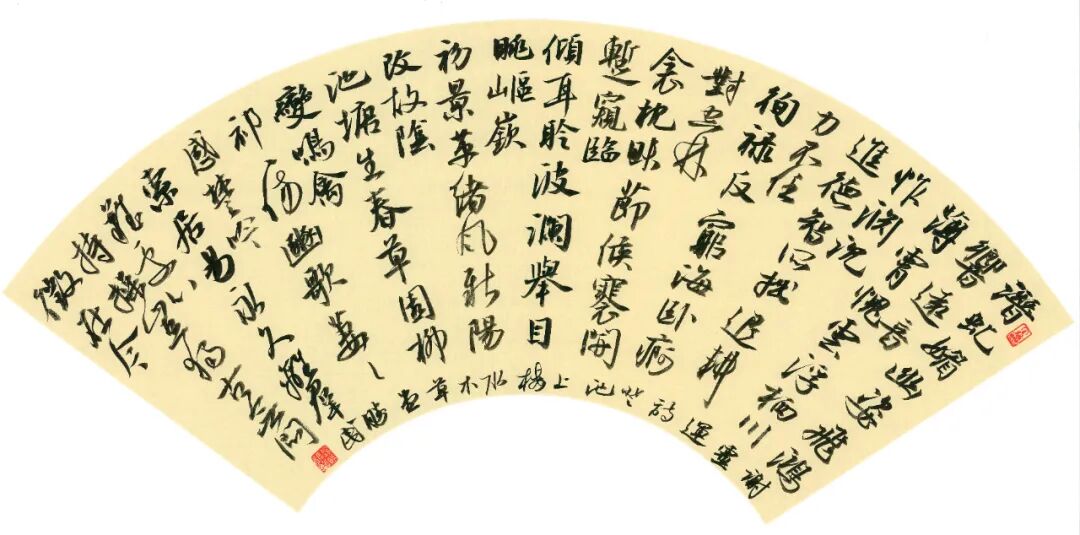 潛虬媚幽姿飛鴻
響遠音
薄霄愧雲浮栖川
怍淵沉
進德智所拙退耕
力不任
徇祿反窮海卧痾
對空林
衾枕昧節候褰開
暫窺臨
傾耳聆波瀾舉目
眺嶇嶔
初景革緒風新陽
改故陰
池塘生春草園柳
變鳴禽
祁祁傷豳歌萋〻
感楚吟
索居易永久離群
難處心
持操豈獨古無悶
徵在今
謝靈運詩登池上樓 木草堂